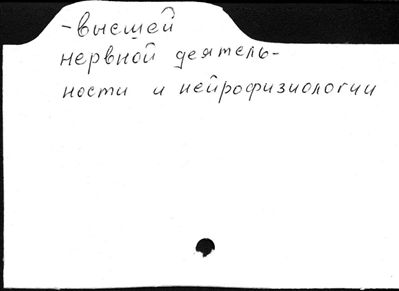 -высшей
нервной деятель-
ности и нейрофизиологии